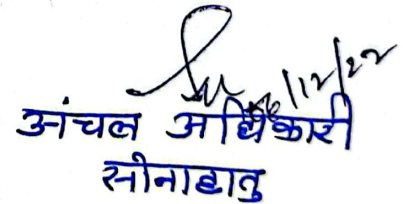 /12/22
अंचल अधिकारी
सोनाहातु